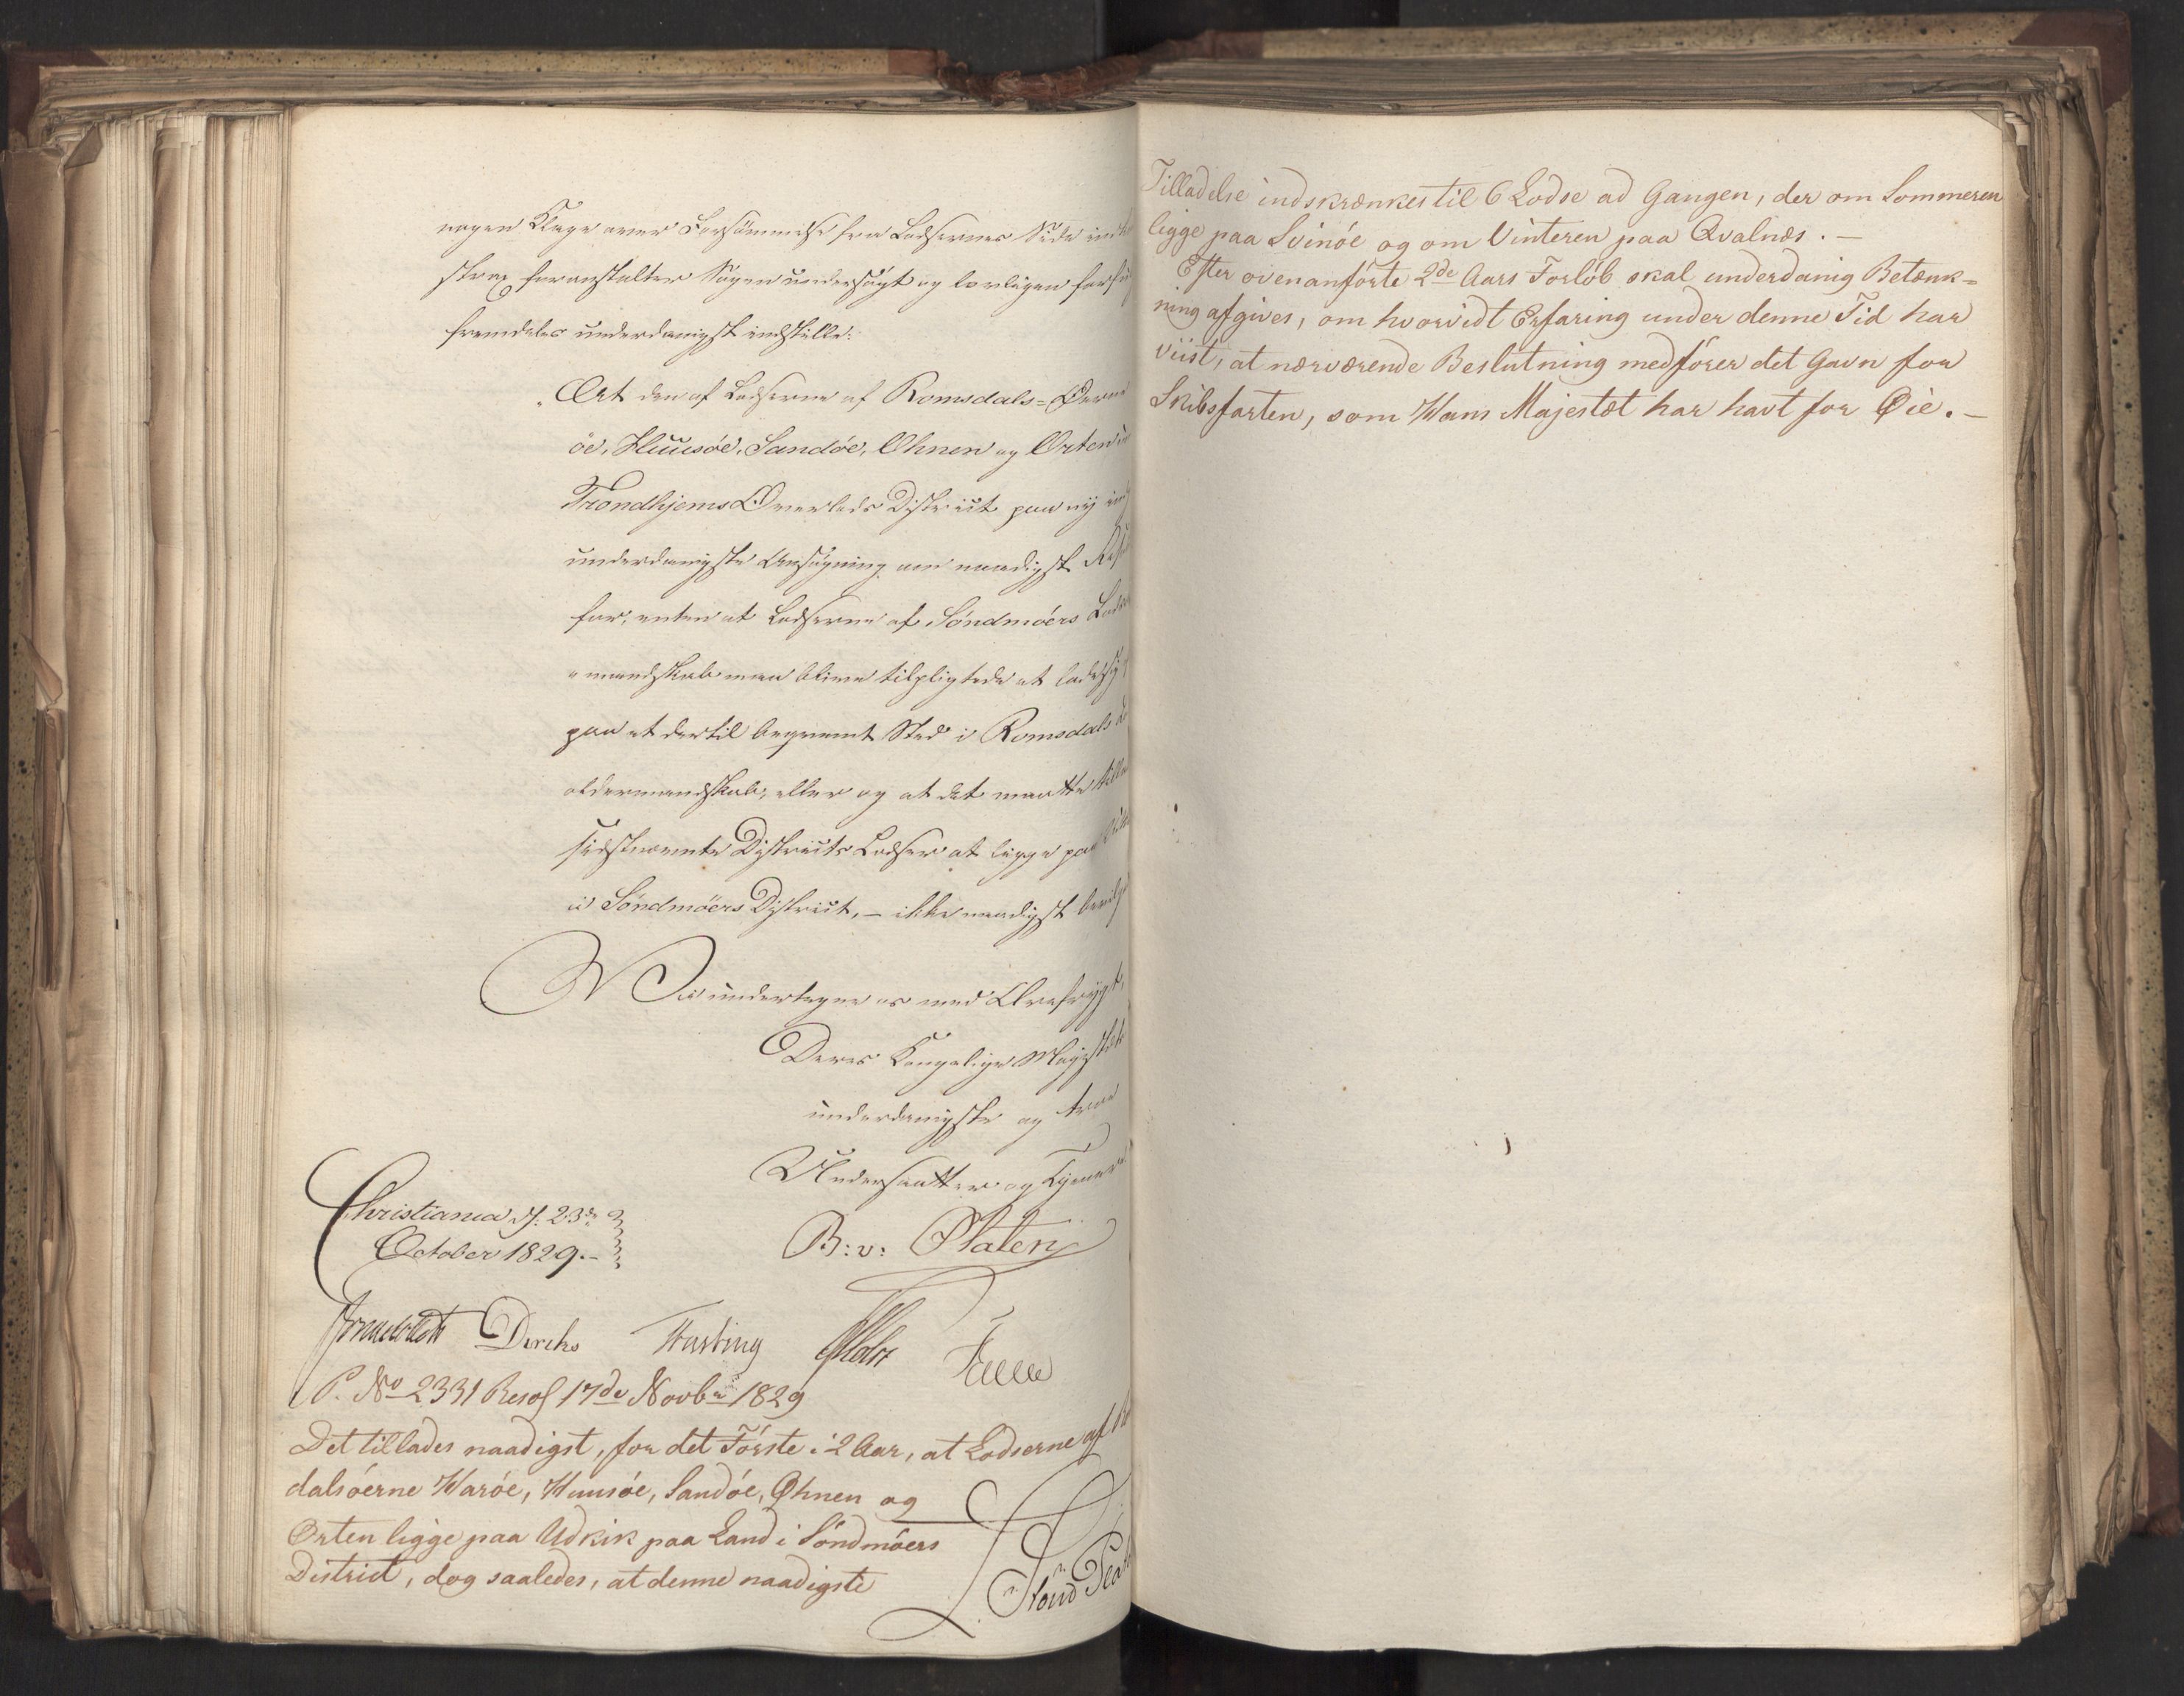 nogen Klage over Forsömmelse fra Lodsernes Side
strax foranstalter Sagen undersøgt og lovligen
fremdeles underdanigst indstille:
"At den af Lodserne af Romsdals=Øerne
öe, Huusöe, Sandöe, Ohnen og Orten
Trondhjems Overlods District paa ny
underdanigste Ansøgning om naadigst
for, enten at Lodserne af Söndmöers
=mandskab maa blive tilpligtede at lade sig
paa et dertil beqvemt Sted i Romsdals
oldermandskab, eller og at det maatte
sidstnævnte Districts Lodser at ligge paa
i Söndmöers District, – ikke naadigst
Vi undertegne os med Ærefrygt,
Deres Kongelige Majestæts
underdanigste og troe
Undersaatter og Tjenere
Christiania d. 23de
October 1829.–
B: v: Platen
Diriks Fasting
P. No 2331 Resol 17de Novbr 1829
Det tillades naadigst, for det Förste i 2 Aar, at Lodserne af
dalsöerne Haröe, Huusöe, Sandöe, Ohnen og
Orten ligge paa Udkik paa Land i Söndmöers
District, dog saaledes, at denne naadigste
Tilladelse indskrænkes til 6 Lodse ad Gangen, der om Sommeren
ligge paa Svinöe og om Vinteren paa Qvalnæs. –
Efter ovenanförte 2de Aars Forlöb skal underdanig Betænk=
ning afgives, om hvorvidt Erfaring under denne Tid har
viist, at nærværende Beslutning medförer det Gavn for
Skibsfarten, som Hans Majestæt har havt for Øie. –